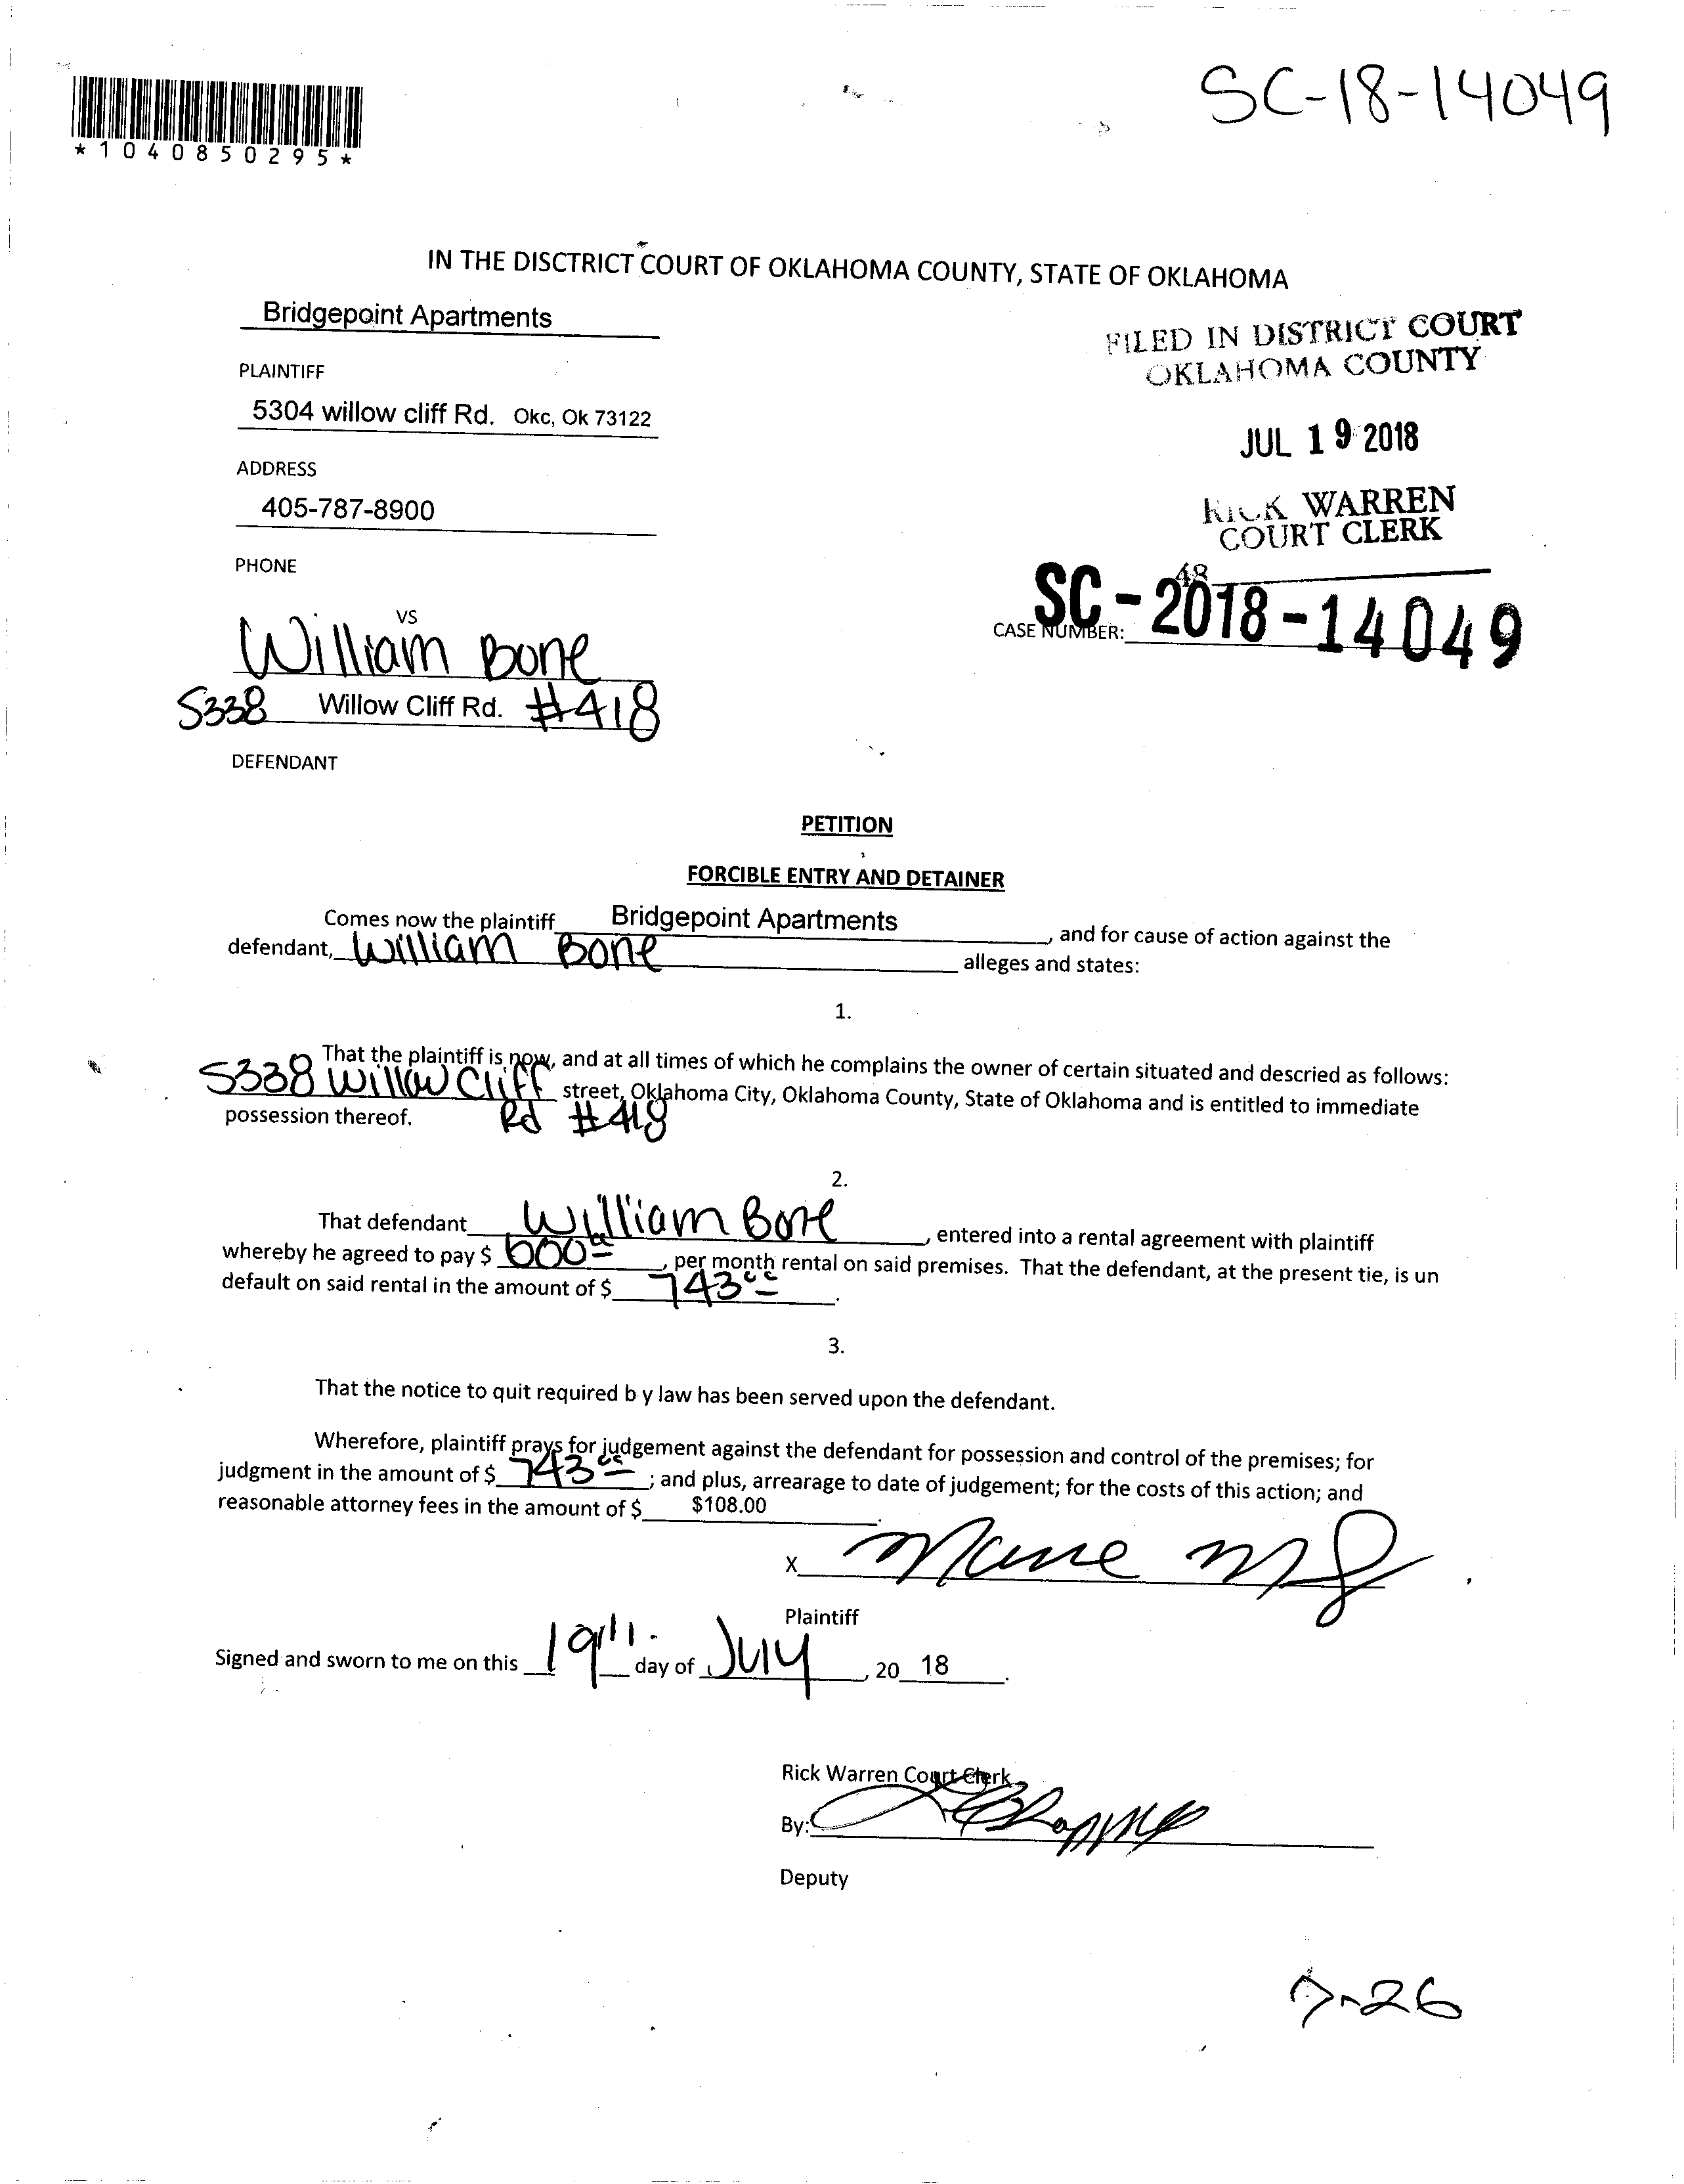 SC-18-14049
*1040850295*
IN THE DISCTRICT COURT OF OKLAHOMA COUNTY, STATE OF OKLAHOMA
Bridgepoint Apartments
PLAINTIFF
5304 willow cliff Rd. Okc, Ok 73122
ADDRESS
405-787-8900
PHONE
FILED IN DISTRICT COURT
OKLAHOMA COUNTY
JUL 19 2018
RICK WARREN
COURT CLERK
48
CASE NUMBER: SC-2018-14049
VS
William Bone
5338 Willow Cliff Rd. #418
DEFENDANT
PETITION
FORCIBLE ENTRY AND DETAINER
Comes now the plaintiff Bridgepoint Apartments, and for cause of action against the
defendant, William Bone alleges and states:
1.
That the plaintiff is now, and at all times of which he complains the owner of certain situated and descried as follows:
5338 Willow Cliff street, Oklahoma City, Oklahoma County, State of Oklahoma and is entitled to immediate
possession thereof. Rd #418
2.
That defendant William Bone, entered into a rental agreement with plaintiff
whereby he agreed to pay $ 600, per month rental on said premises. That the defendant, at the present tie, is un
default on said rental in the amount of $ 743 00.
3.
That the notice to quit required b y law has been served upon the defendant.
Wherefore, plaintiff prays for judgement against the defendant for possession and control of the premises; for
judgment in the amount of $ 743 00; and plus, arrearage to date of judgement; for the costs of this action; and
reasonable attorney fees in the amount of $ $108.00.
X
Plaintiff
Signed and sworn to me on this 19th day of July, 20 18.
Rick Warren Court Clerk
By:
Deputy
7-26